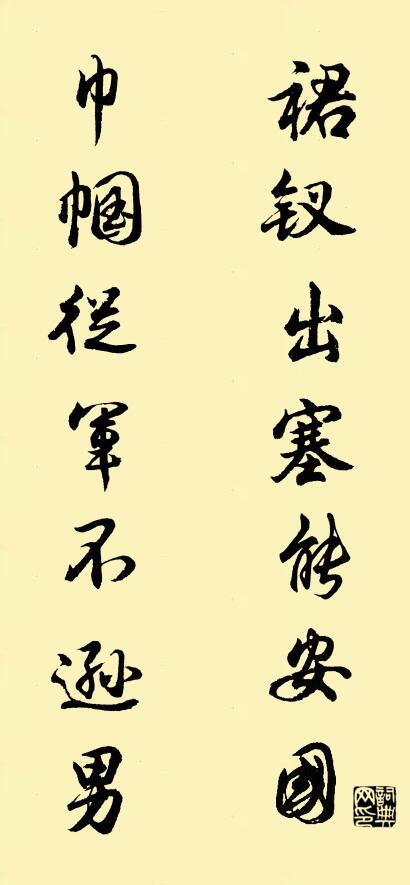 裙钗出塞能安國
巾帼從軍不遜男
詞典网印